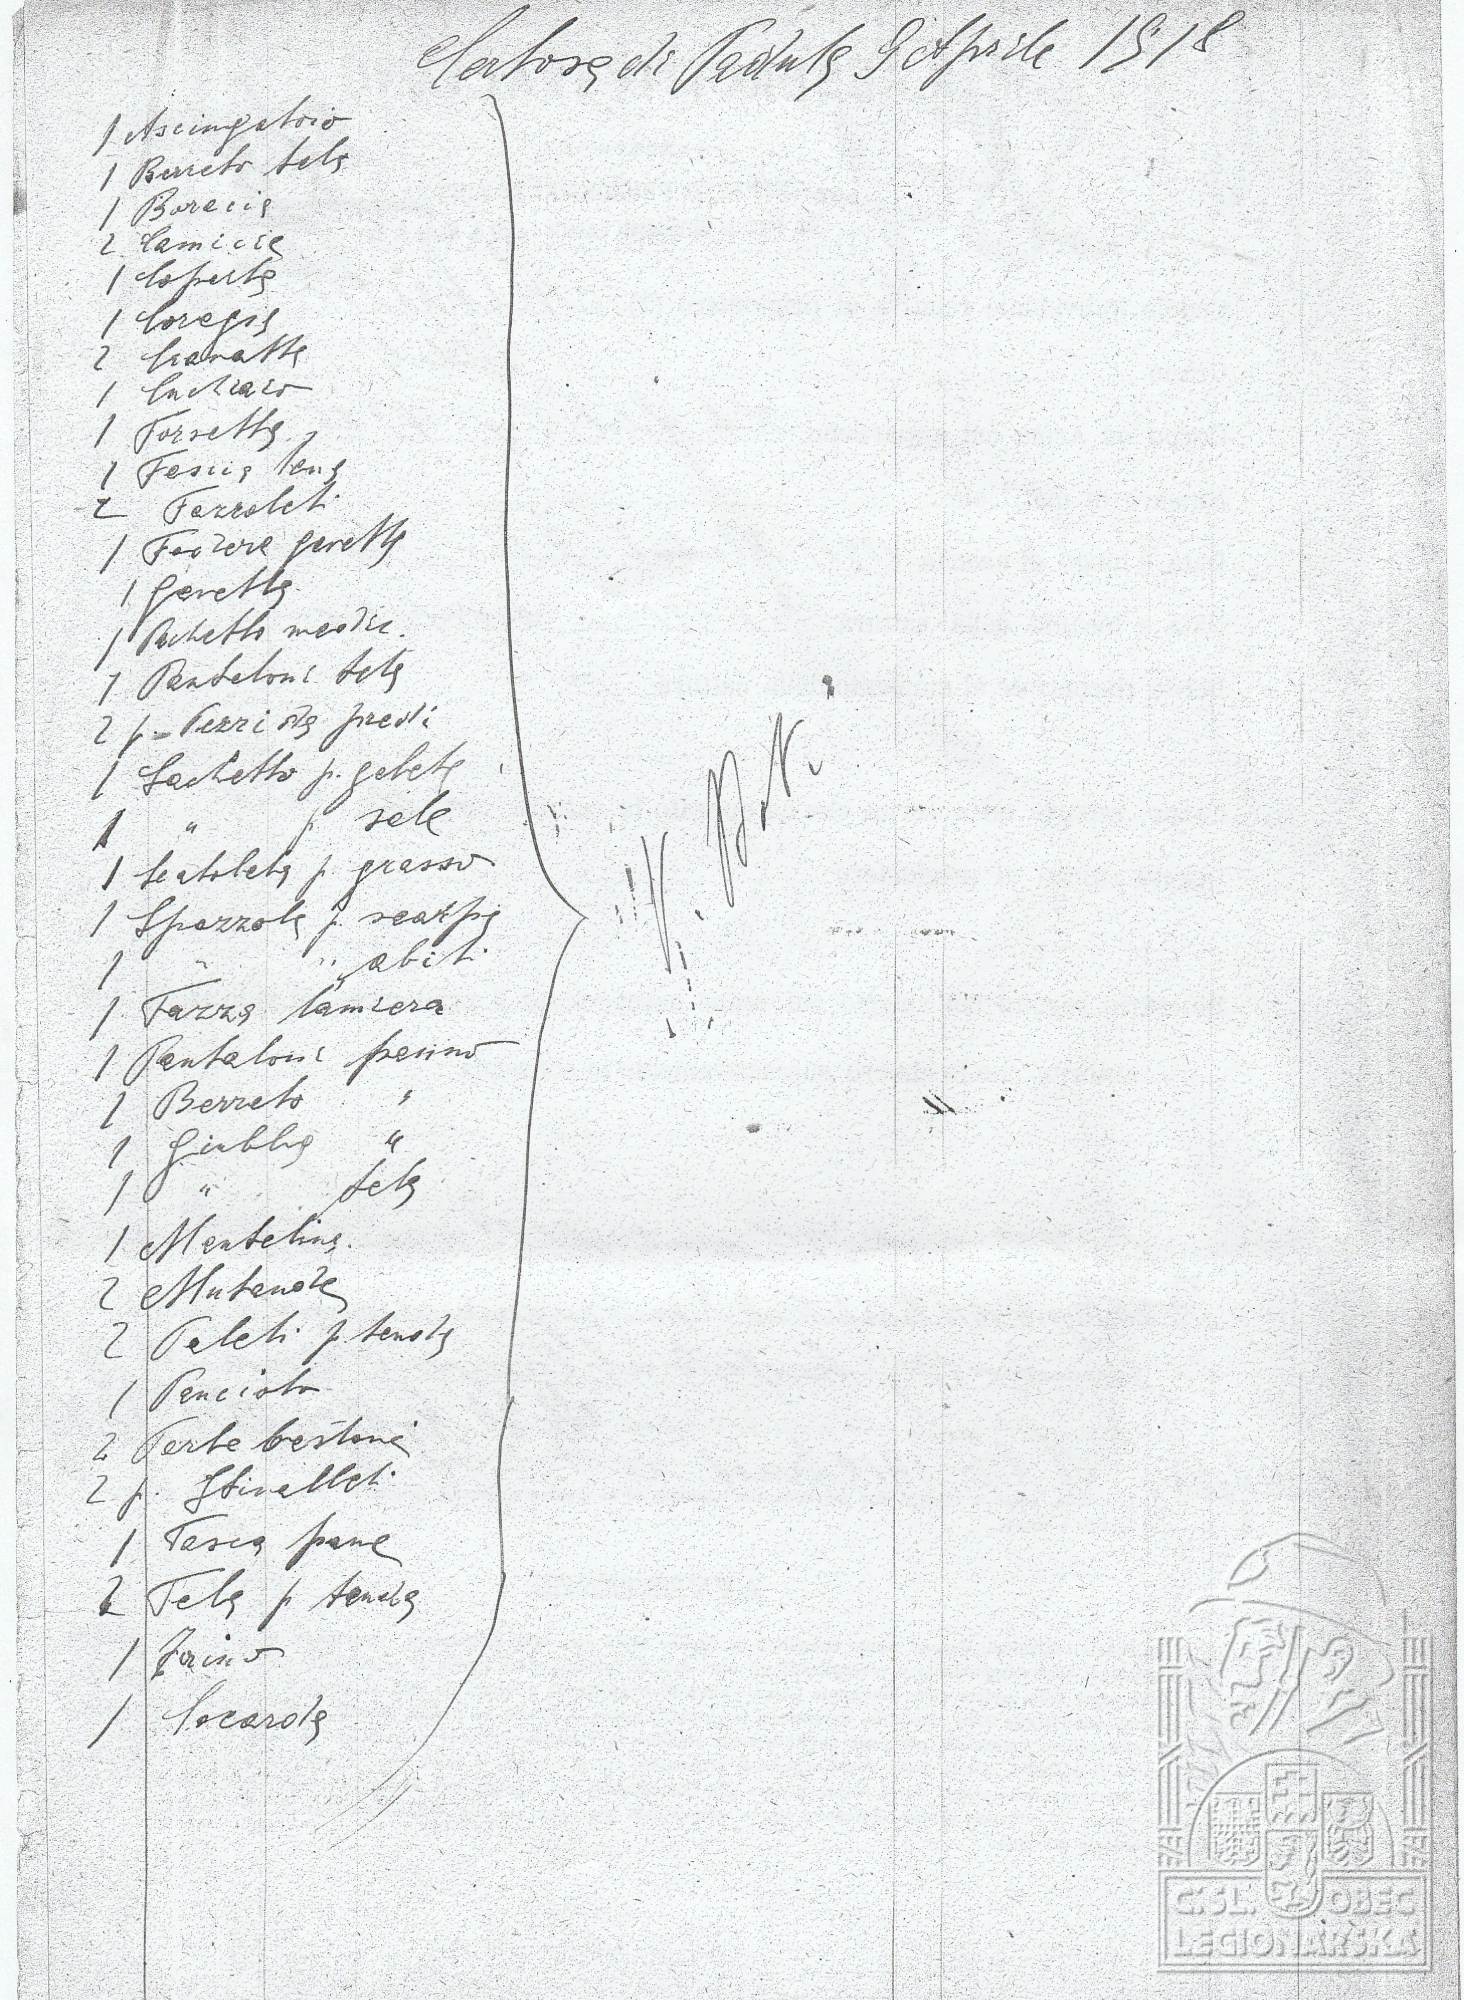 Certosa di Padula 9 Aprile 1918
1 Asciugatoio
1 Berreto tela
1 Boracia
2 Camicie
1 Coperta
1 Coregia
2 Cravatte
1 Cuchiaio
1 Forsetta
1 Fascia lana
2 Fazzoleti
1 Fodera gavetta
1 Gavetta
1 Pachetto medic.
1 Pantaloni tela
2 p. Pezzi da piedi
1 Sachetto p. galete
1 " p. sale
1 Scatoleta p. grasso
1 Spazzola p. scarpe
1 " " abiti
1 Tazza lamiera
1 Pantaloni panno
1 Berreto "
1 Giubba "
1 " tela
1 Mantelina.
2 Mutande
2 Paleti p. tenda
1 Pancioto
2 Parte bastone
2 p. Stivalleti
1 Tasca pane
2 Tela p tenda
1 Zaino
1 Cocarda
Č.SL. OBEC
LEGIONÁŘSKÁ